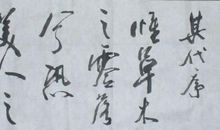 其代序
惟草木
之零落
兮恐
美人之